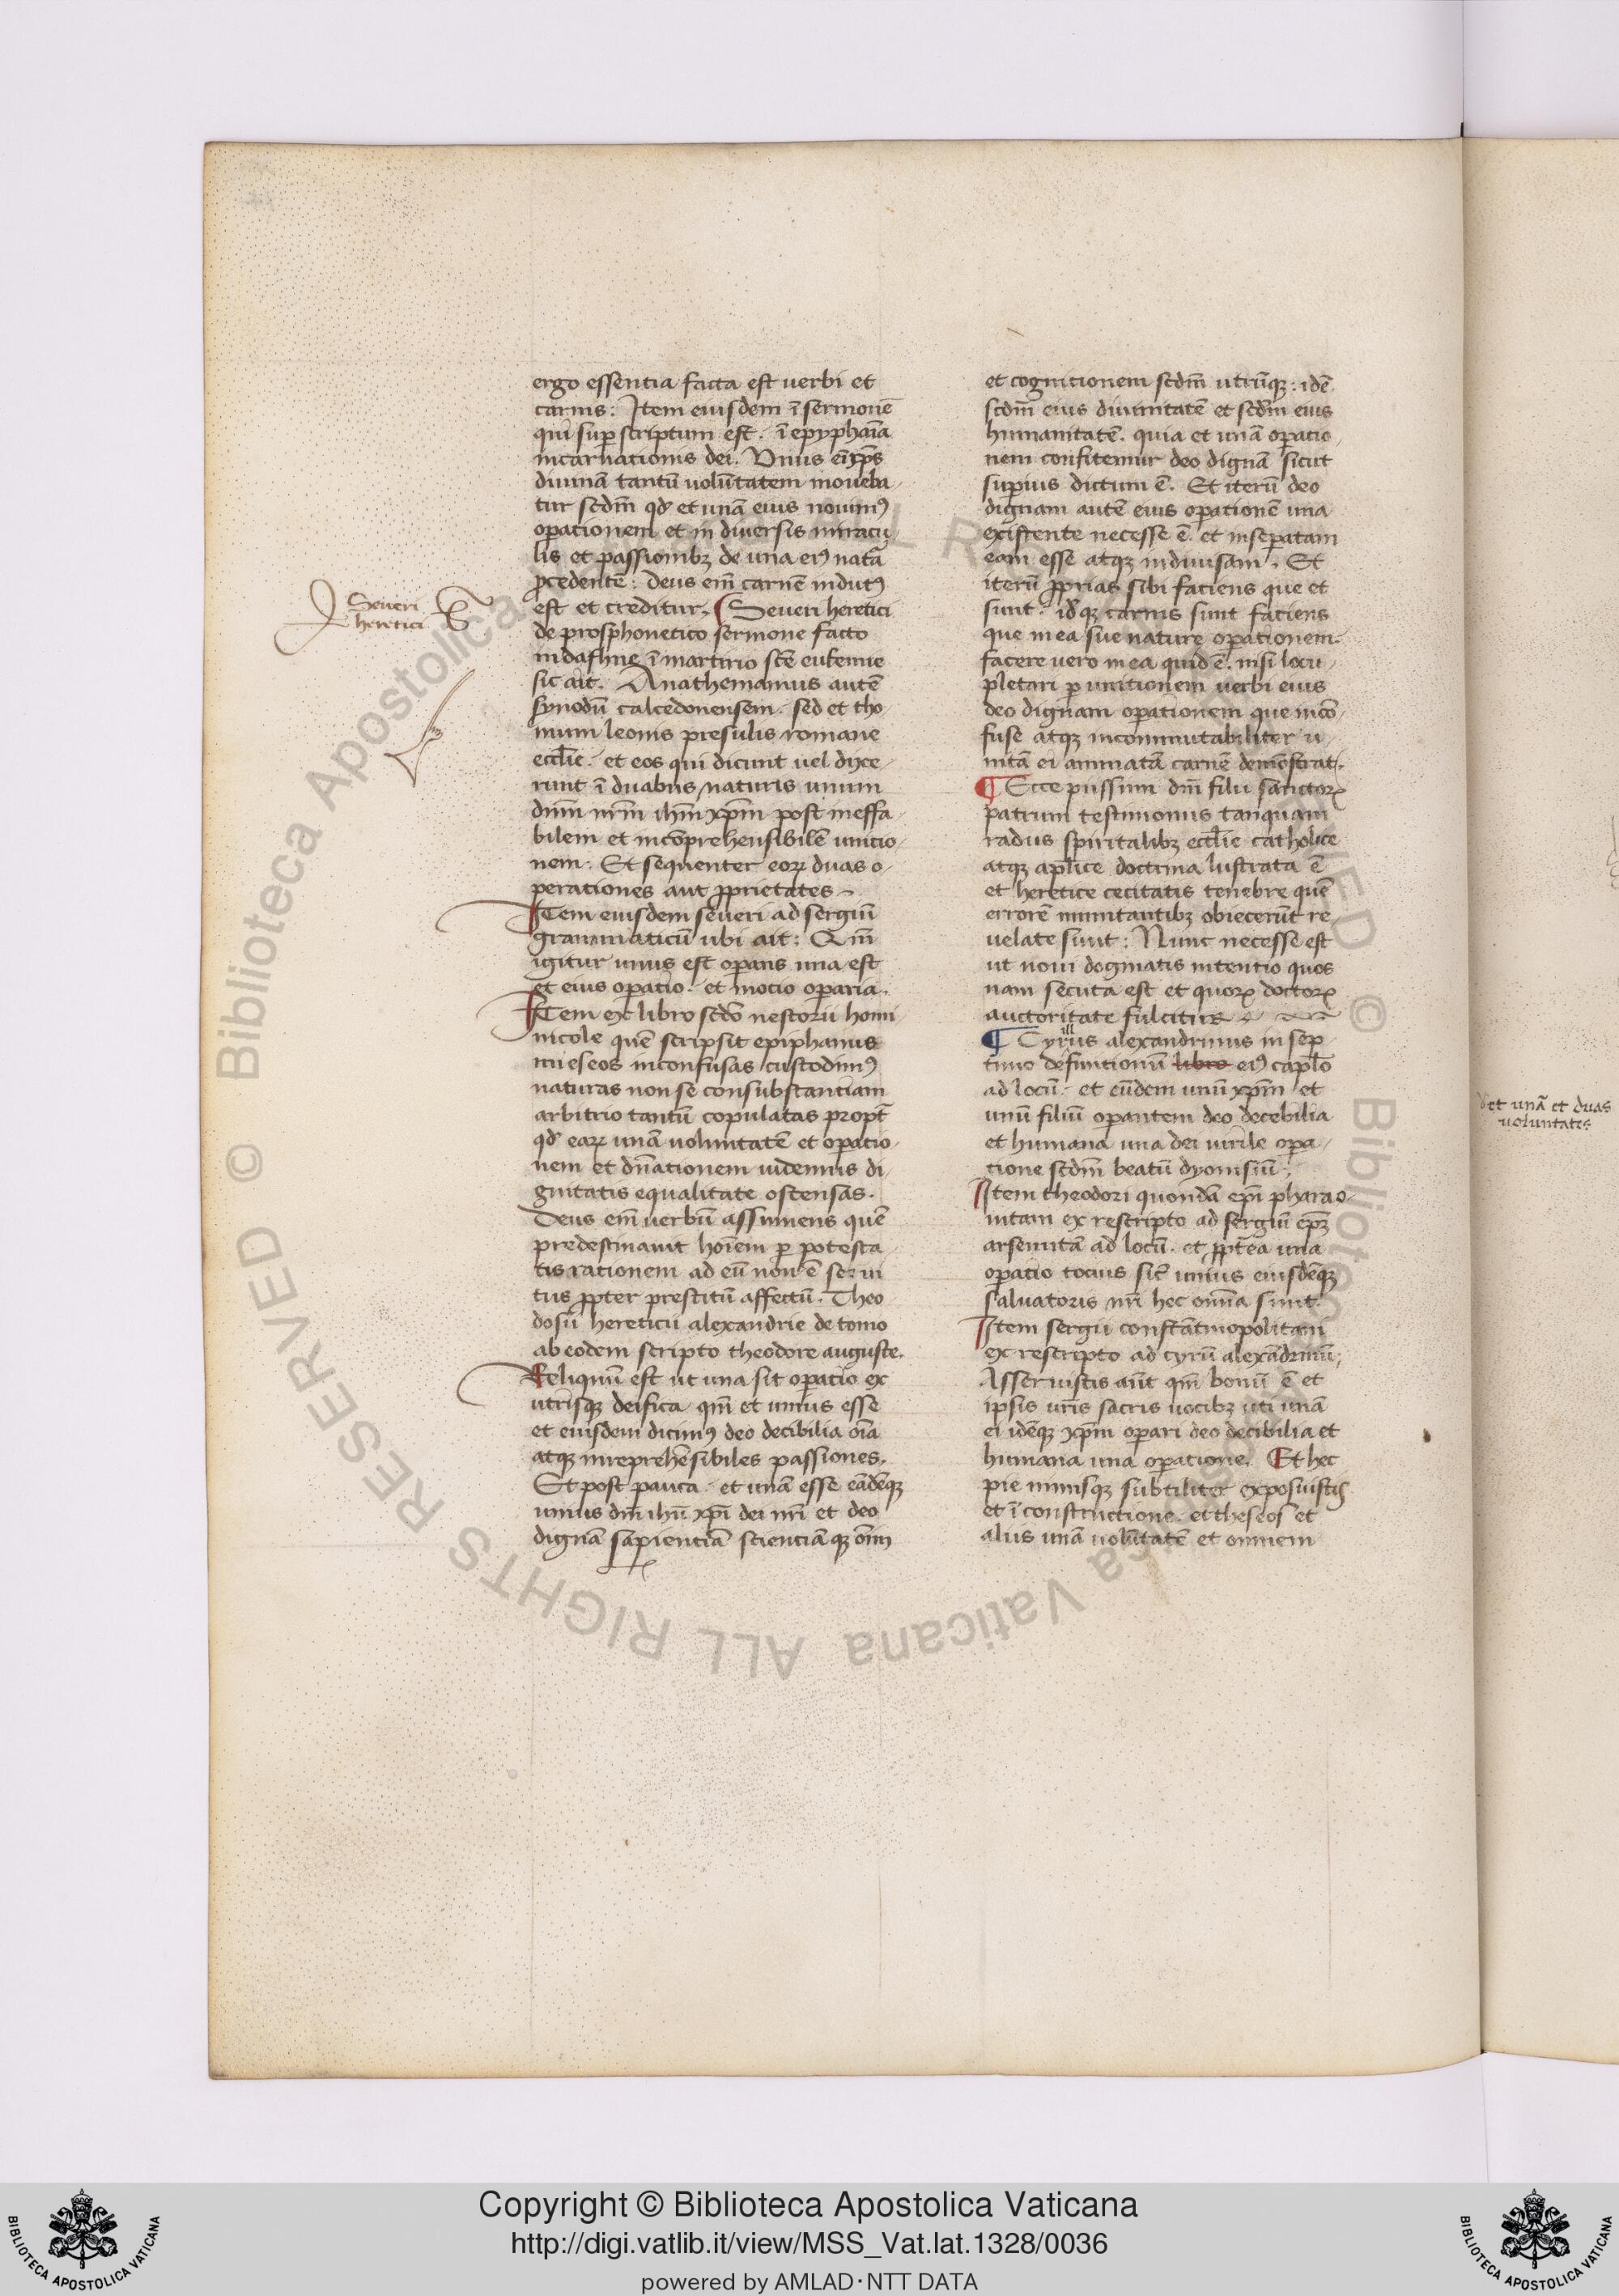 ergo essentia facta est uerbi et
carnis: Item eiusdem ī sermonē
qui sup scriptum est. ī epyphaīa
incarnationis dei. Vnus eī xp̄s
diuinā tantū uolūtatem moueba-
tur scdm̄ qd et unā eius nouimꝰ
operationem et in diuersis miracu-
lis et passionibꝫ de una eiꝰ nata
ꝓcedentē: deus em̄ carnē indutꝰ
est et creditur. Seueri heretici
de prosphonetico sermone facto
in dafhne ī martirio sc̄e eufemie
sic ait. Anathemamus autē
synodū calcedonensem. sed et tho-
mum leonis presulis romane
eccl̄ie. et eos qui dicunt uel dixe-
runt ī duabus naturis unum
dn̄m nr̄m ihm̄ xpm̄ post ineffa-
bilem et incōprehensibilē unicio-
nem. Et sequenter eoꝝ duas o-
perationes aut ꝓprietates
Item eiusdem seueri ad sergiū
grammaticū ubi ait: Qm̄
igitur unus est operans una est
et eius operatio. et motio operaria.
Item ex libro scdo nestorii homi
nicole quē scripsit epiphanius
mieseos inconfusas custodimꝰ
naturas non se consubstantiam
arbitrio tantū copulatas propt̄
qd eaꝝ unā uoluntatē et operatio-
nem et dn̄ationem uidemus di-
gnitatis equalitate ostensas.
Deus em̄ uerbū assumens quē
predestinauit hoīem p potesta-
tis rationem ad eū non ē serui
tus ꝓpter prestitū affectū. Theo
dosii heretici alexandrie de tomo
ab eodem scripto theodore auguste.
Reliquū est ut una sit operatio ex
utrisqꝫ deifica qm̄ et unius esse
et eiusdem dicimꝰ deo decibilia oīa
atqꝫ inreprehēsibiles passiones.
Et post pauca. et unā esse eādēqꝫ
unius dn̄i ihū xpī dei nr̄i et deo
dignā sapientiā scientiāqꝫ om̄i
Seueri
heretici
et cognitionem scdm̄ utrūqꝫ: idē
scdm̄ eius diuinitatē et scdm̄ eius
humanitatē. quia et unā operatio-
nem confitemur deo dignā sicut
superius dictum ē. Et iterū deo
dignam autē eius operationē una
existente necesse ē. et inseperatam
eam esse atqꝫ indiuisam. Et
iterū ꝓprias sibi faciens que et
sunt. idqꝫ carnis sunt faciens
que in ea sue nature operationem.
facere uero in ea quid ē. nisi locu-
pletari p unitionem uerbi eius
deo dignam operationem que incō-
fuse atqꝫ incommutabiliter u-
nitā ei animatā carnē demōstrat.
Ecce piissimi dn̄i filii sanctoꝝ
patrum testimoniis tanquam
radiis spiritalibꝫ eccl̄ie catholice
atqꝫ apl̄ice doctrina lustrata ē
et heretice cecitatis tenebre quē
errorē imitantibꝫ obiecerūt re-
uelate sunt: Nunc necesse est
ut noui dogmatis intentio quos
nam secuta est et quoꝝ doctoꝝ
auctoritate fulcitur
Cyrillus alexandrinus in sep-
timo definitionū libro eiꝰ capl̄o
ad locū. et eūdem unū xpm̄ et
unū filiū operantem deo decebilia
et humana una dei uirile opa-
tione scdm̄ beatū dyonisiū:
Item theodori quondā ep̄i pharao-
nitam ex rescripto ad sergiū ep̄ꝫ
arsenuitā ad locū. et ꝓpt̄ea una
operatio tocius sic̄ unius eiusdēqꝫ
saluatoris nr̄i hec om̄ia sunt.
Item sergii constātinopolitani
ex rescripto ad cyrū alexādrinū;
Asseruistis aūt qm̄ bonū ē et
ipsis ur̄is sacris uocibꝫ uti unā
ei idēqꝫ xpm̄ operari deo decibilia et
humana una operatione. Et hec
pie nimisqꝫ subtiliter exposuistis
et ī constructione. et theseos et
aliis unā uolūtatē et omnem
et unā et duas
uoluntates
© Biblioteca Apostolica Vaticana ALL RIGHTS RESERVED
Copyright © Biblioteca Apostolica Vaticana
http://digi.vatlib.it/view/MSS_Vat.lat.1328/0036
powered by AMLAD·NTT DATA
BIBLIOTECA APOSTOLICA VATICANA
BIBLIOTECA APOSTOLICA VATICANA